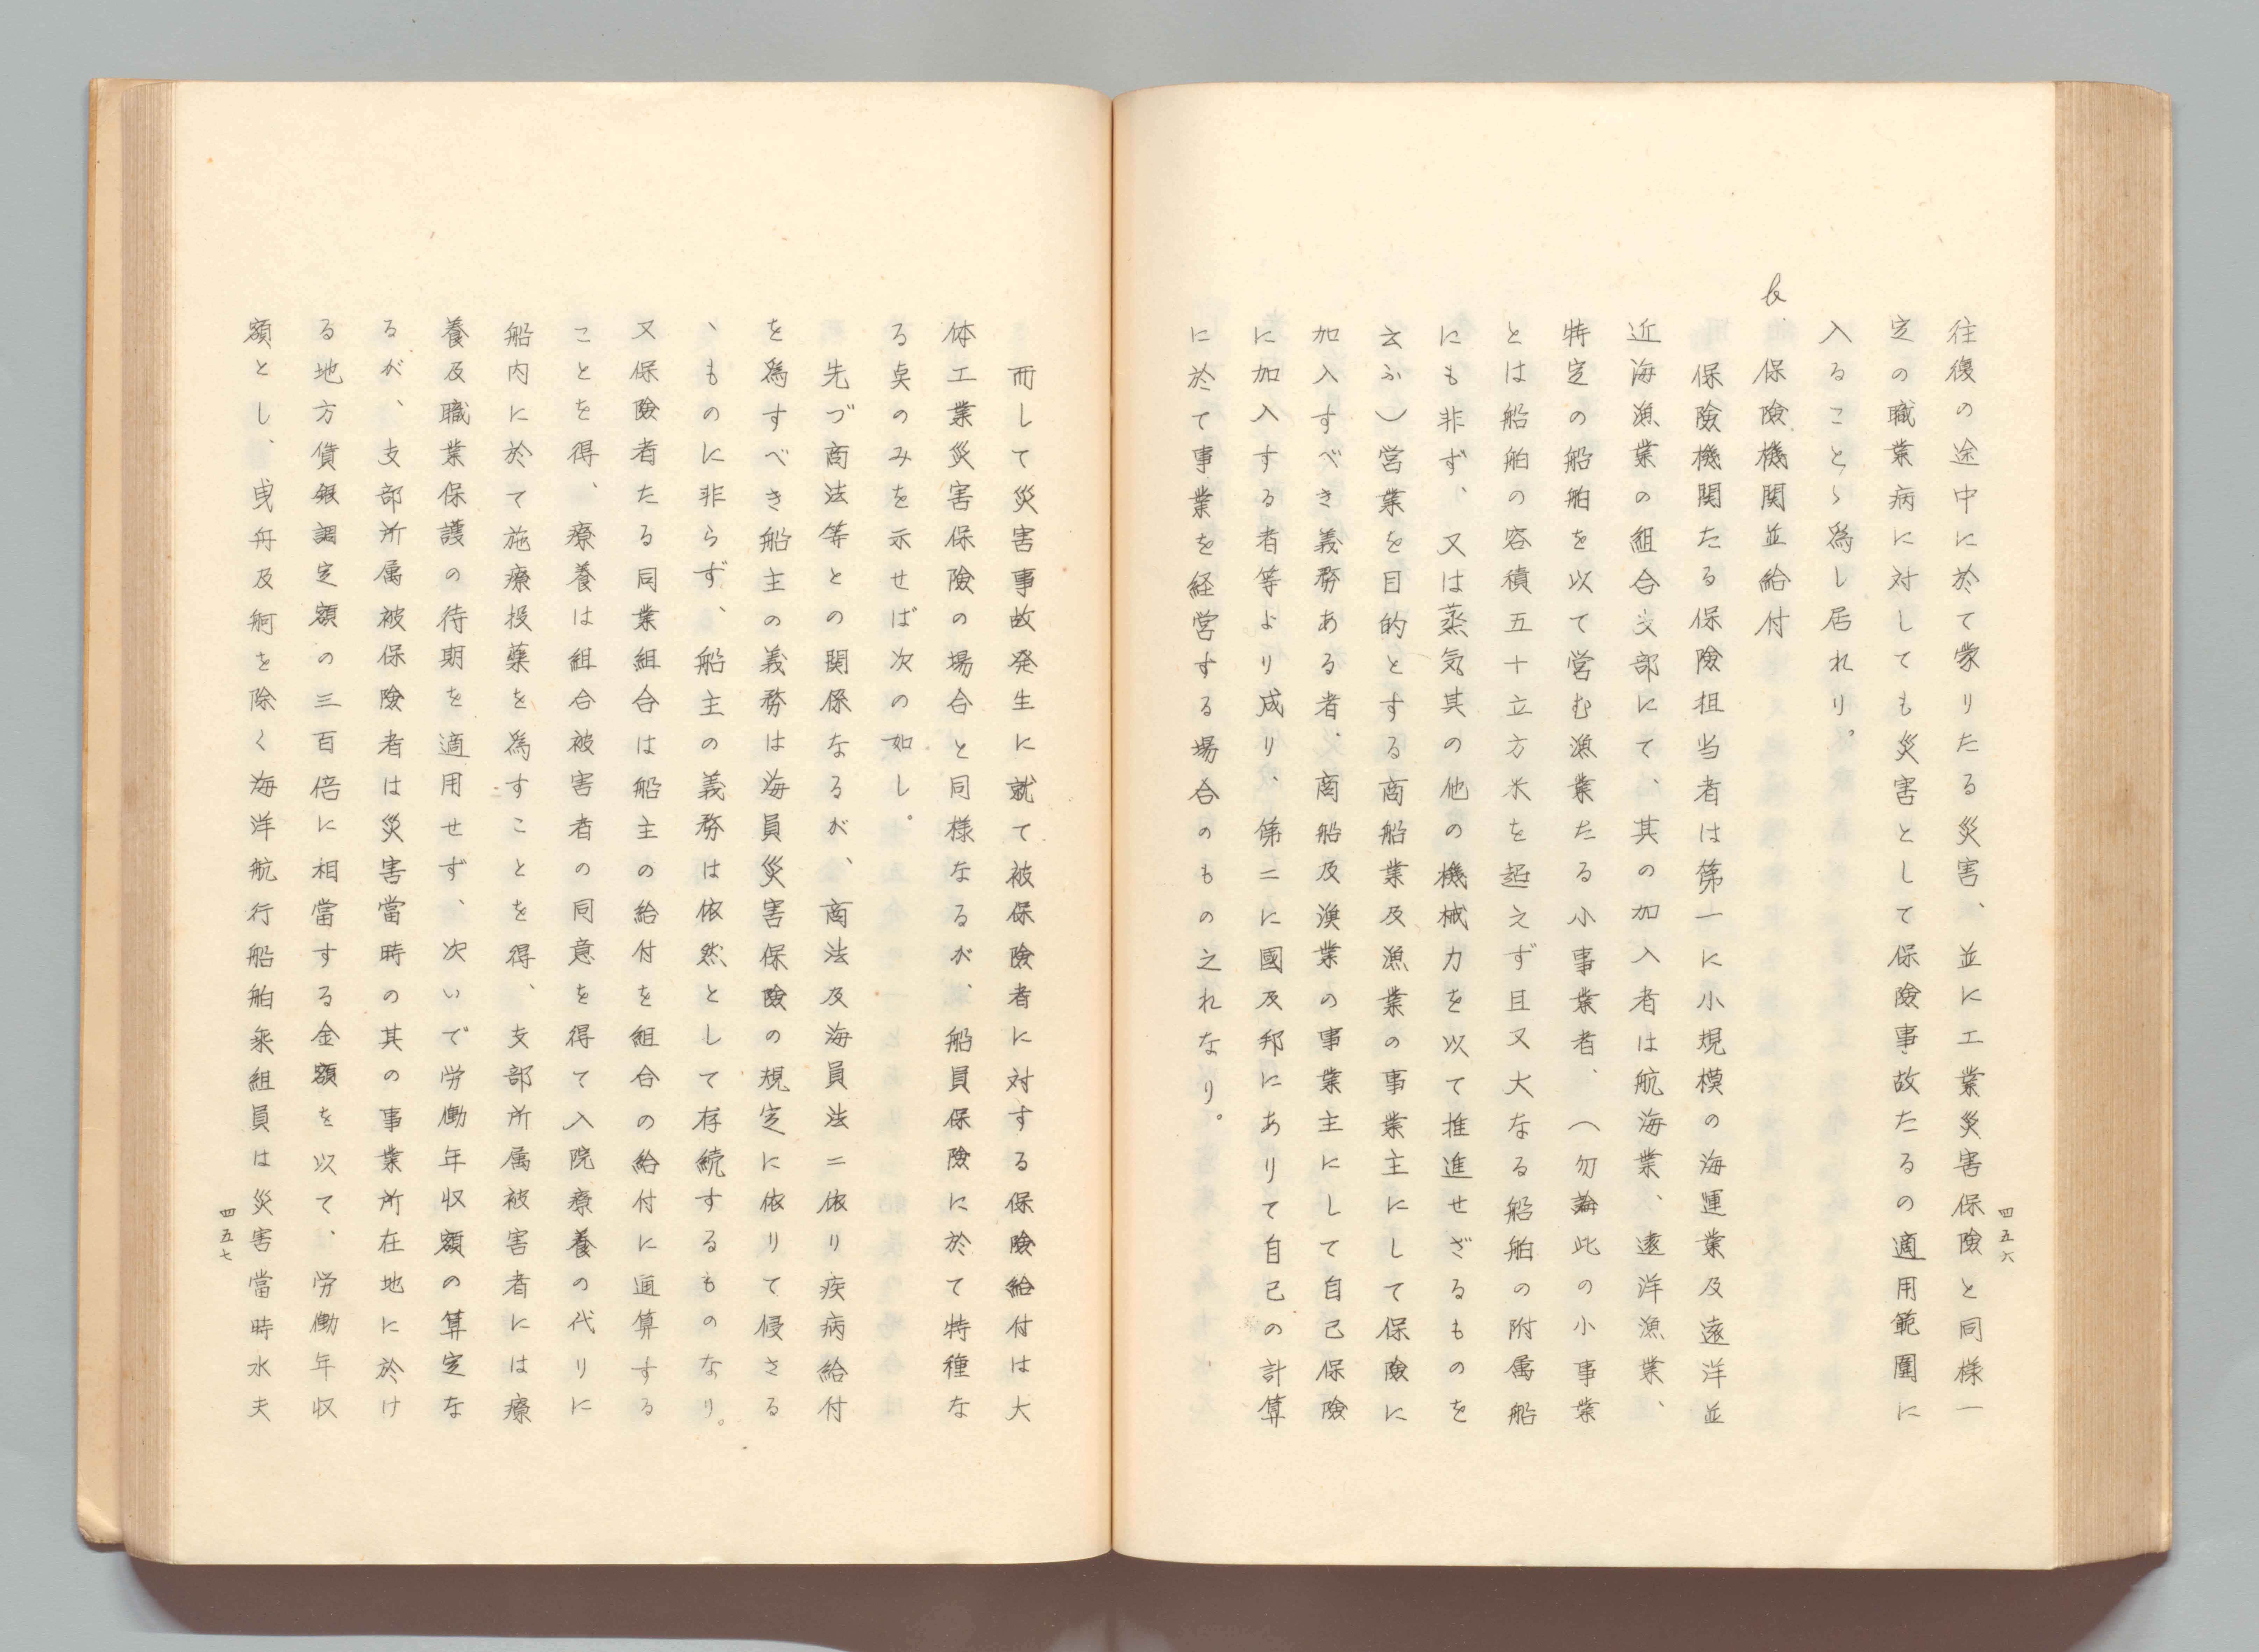 四五六
往復の途中に於て蒙りたる災害、並に工業災害保険と同様一
定の職業病に対しても災害として保険事故たるの適用範圍に
入ることゝ為し居れり。
b. 保険機関並給付
保険機関たる保険担当者は第一に小規模の海運業及遠洋並
近海漁業の組合支部にて、其の加入者は航海業、遠洋漁業、
特定の船舶を以て営む漁業たる小事業者、(勿論此の小事業
とは船舶の容積五十立方米を超えず且又大なる船舶の附属船
にも非ず、又は蒸気其の他の機械力を以て推進せざるものを
云ふ)営業を目的とする商船業及漁業の事業主にして保険に
加入すべき義務ある者、商船及漁業の事業主にして自己保険
に加入する者等より成り、第二に國及邦にありて自己の計算
に於て事業を経営する場合のもの之れなり。
而して災害事故発生に就て被保険者に対する保険給付は大
体工業災害保険の場合と同様なるが、船員保険に於て特種な
る奌のみを示せば次の如し。
先づ商法等との関係なるが、商法及海員法ニ依り疾病給付
を為すべき船主の義務は海員災害保険の規定に依りて侵さる
ヽものに非らず、船主の義務は依然として存続するものなり。
又保険者たる同業組合は船主の給付を組合の給付に通算する
ことを得、療養は組合被害者の同意を得て入院療養の代りに
船内に於て施療投薬を為すことを得、支部所属被害者には療
養及職業保護の待期を適用せず、次いで労働年収額の算定な
るが、支部所属被保険者は災害當時の其の事業所在地に於け
る地方賃銀調定額の三百倍に相當する金額を以て、労働年収
額とし、曳舟及舸を除く海洋航行船舶乗組員は災害當時水夫
四五七